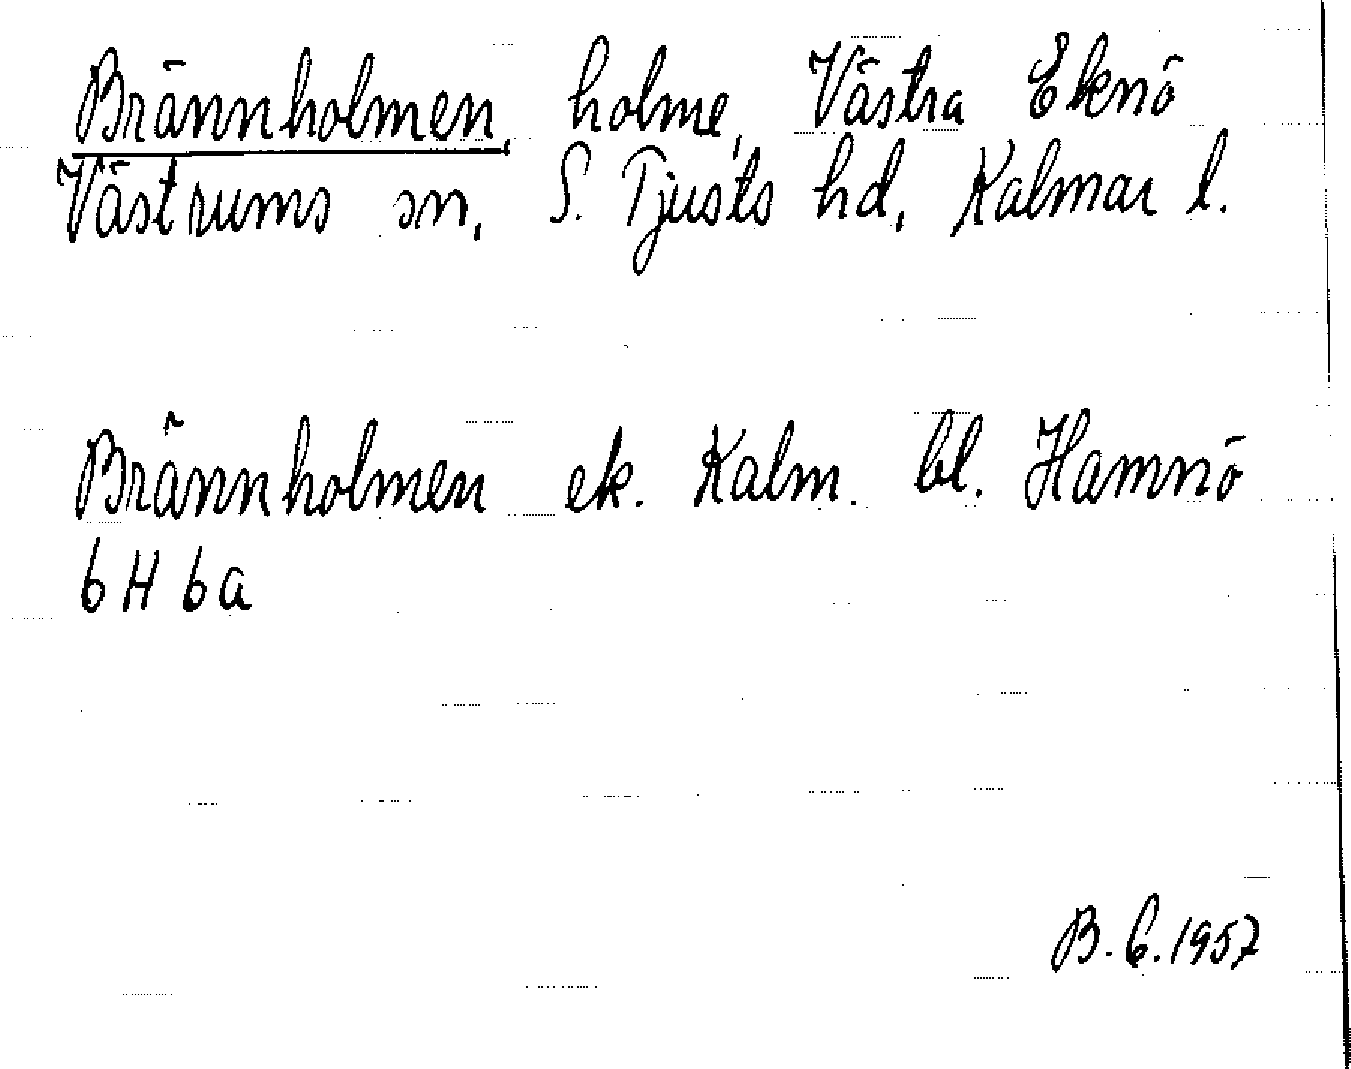 Brännholmen, holme, Västra Eknö
Västrums sn, S. Tjusts hd, Kalmar l.
Brännholmen ek. Kalm. bl. Hamnö
6H 6a
B. G. 1957